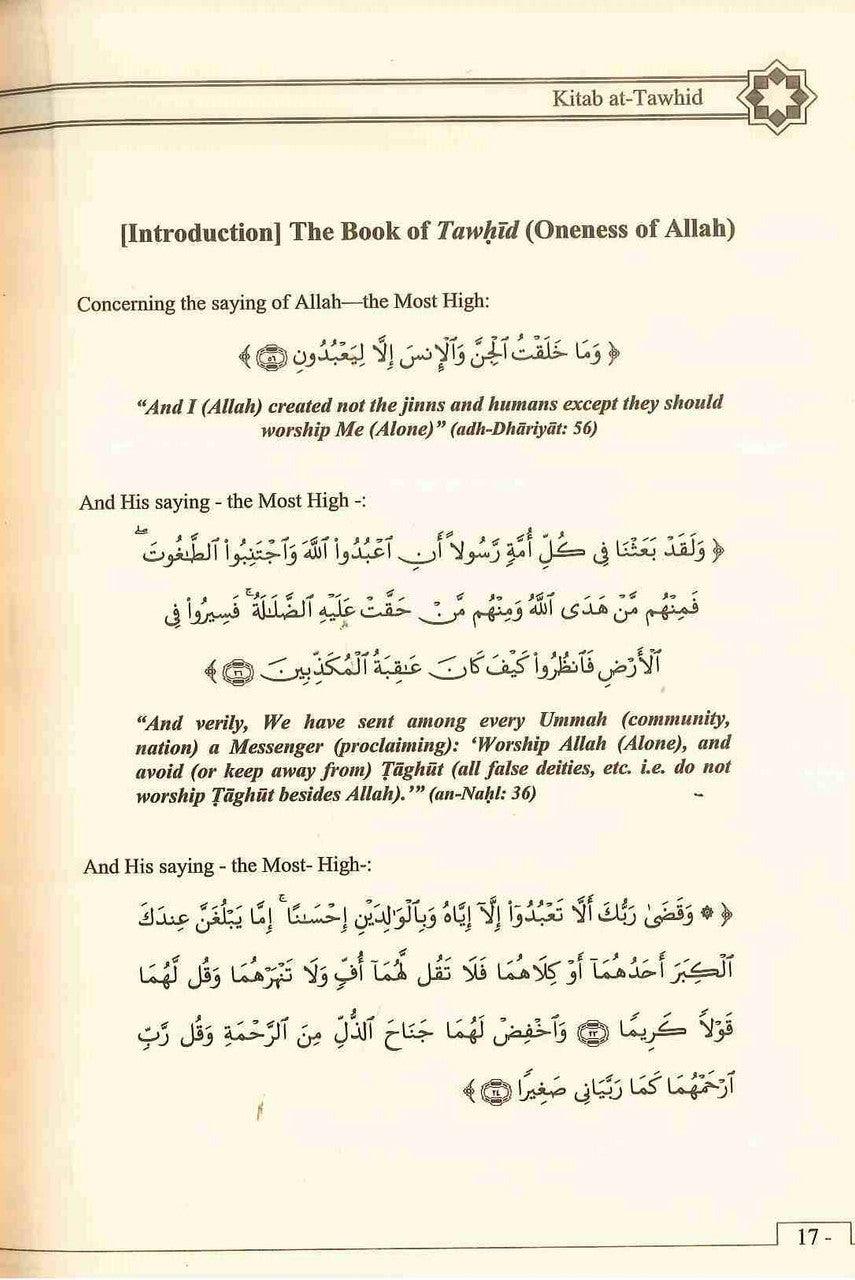 Kitab at-Tawhid
[Introduction] The Book of Tawḥīd (Oneness of Allah)
Concerning the saying of Allah—the Most High:
﴿ وَمَا خَلَقْتُ ٱلْجِنَّ وَٱلْإِنسَ إِلَّا لِيَعْبُدُونِ ۝٥٦ ﴾
“And I (Allah) created not the jinns and humans except they should
worship Me (Alone)” (adh-Dhāriyāt: 56)
And His saying - the Most High -:
﴿ وَلَقَدْ بَعَثْنَا فِى كُلِّ أُمَّةٍ رَّسُولاً أَنِ ٱعْبُدُوا۟ ٱللَّهَ وَٱجْتَنِبُوا۟ ٱلطَّـٰغُوتَ ۖ
فَمِنْهُم مَّنْ هَدَى ٱللَّهُ وَمِنْهُم مَّنْ حَقَّتْ عَلَيْهِ ٱلضَّلَـٰلَةُ ۚ فَسِيرُوا۟ فِى
ٱلْأَرْضِ فَٱنظُرُوا۟ كَيْفَ كَانَ عَـٰقِبَةُ ٱلْمُكَذِّبِينَ ۝٣٦ ﴾
“And verily, We have sent among every Ummah (community,
nation) a Messenger (proclaiming): ‘Worship Allah (Alone), and
avoid (or keep away from) Ṭāghūt (all false deities, etc. i.e. do not
worship Ṭāghūt besides Allah).’” (an-Naḥl: 36)
And His saying - the Most- High-:
﴿ ۞ وَقَضَىٰ رَبُّكَ أَلَّا تَعْبُدُوٓا۟ إِلَّآ إِيَّاهُ وَبِٱلْوَٰلِدَيْنِ إِحْسَـٰنًا ۚ إِمَّا يَبْلُغَنَّ عِندَكَ
ٱلْكِبَرَ أَحَدُهُمَآ أَوْ كِلَاهُمَا فَلَا تَقُل لَّهُمَآ أُفٍّ وَلَا تَنْهَرْهُمَا وَقُل لَّهُمَا
قَوْلاً كَرِيمًا ۝٢٣ وَٱخْفِضْ لَهُمَا جَنَاحَ ٱلذُّلِّ مِنَ ٱلرَّحْمَةِ وَقُل رَّبِّ
ٱرْحَمْهُمَا كَمَا رَبَّيَانِى صَغِيرًا ۝٢٤ ﴾
17 -